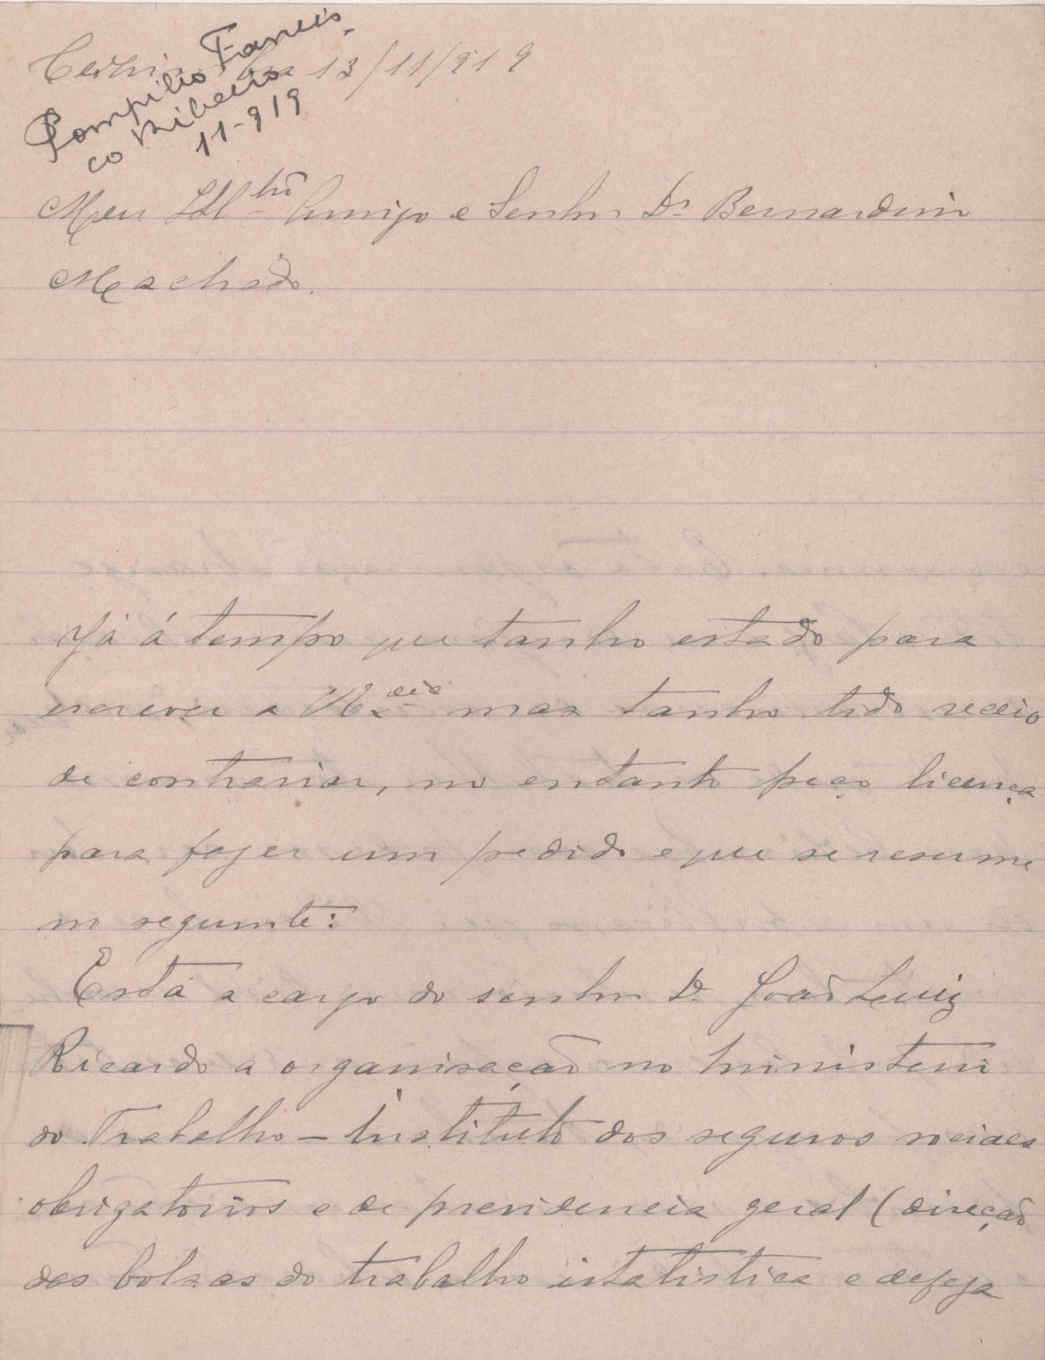 13/11/919
Pompilio Francis-
co Ribeiro
11-919
Meu Illmo Amigo e Senhor Dr Bernardino
Machado.
Já á tempo que tanho estado para
escrever a V. Excia mas tanho tido receio
de contrariar, no entanto peço licença
para fazer um pedido e que se resume
no seguinte:
Está a cargo do senhor Dr João Luiz
Ricardo a organisação no ministerio
do Trabalho - Instituto dos seguros sociaes
obrigatorios e de previdencia geral (direcção
das bolsas do trabalho istatistica e defeza